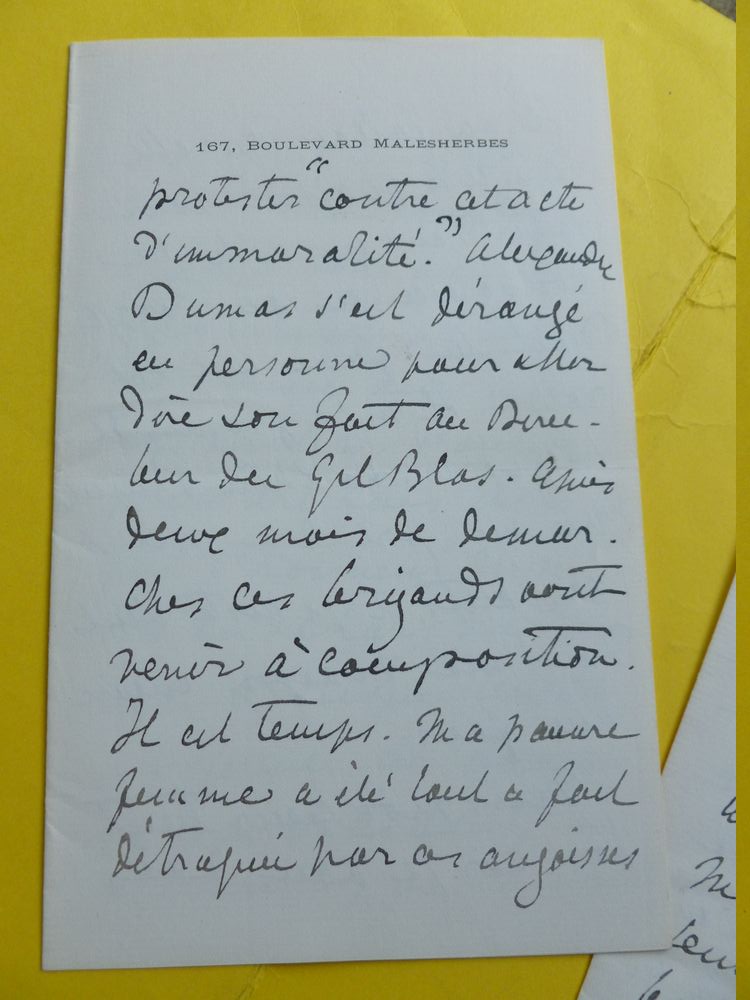 167, BOULEVARD MALESHERBES
protester "contre cet acte
d'immoralité." Alexandre
Dumas s'est dérangé
en personne pour aller
dire son fait au Direc-
teur du Gil Blas. Après
deux mois de démar-
ches ces brigands vont
venir à composition.
Il est temps. Ma pauvre
femme a été tout a fait
détraquée par ces angoisses